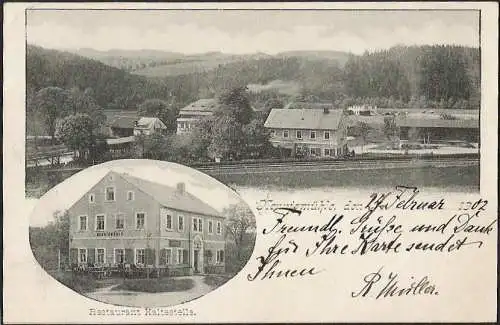 den 24 Februar 1902
Freundl. Grüße und Dank
für Ihre Karte sendet
Ihnen
Restaurant Haltestelle.